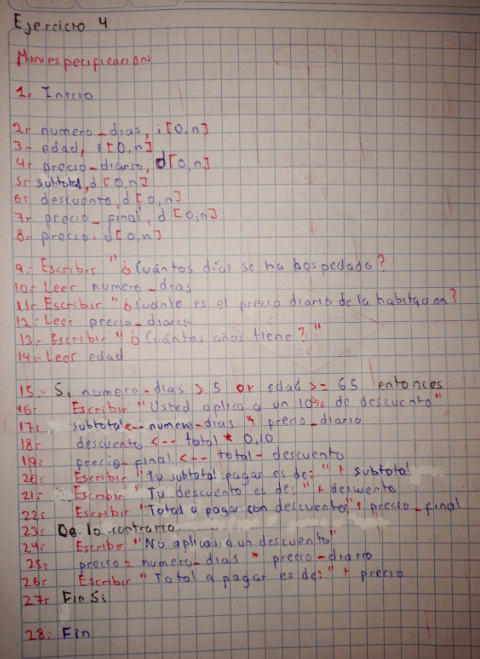 Ejercicio 4
Miniespecificación:
1.- Inicio
2.- numero_dias, i [0,n]
3.- edad, i [0,n]
4.- precio_diario, d [0,n]
5.- subtotal, d [0,n]
6.- descuento, d [0,n]
7.- precio_final, d [0,n]
8.- precio, d [0,n]
9.- Escribir "¿Cuántos días se ha hospedado?
10.- Leer numero_dias
11.- Escribir "¿Cuánto es el precio diario de la habitacion?
12.- Leer precio_diario
13.- Escribir "¿Cuántos años tiene?"
14.- Leer edad
15.- Si numero_dias > 5 or edad >= 65 entonces
16.- Escribir "Usted aplica a un 10% de descuento"
17.- subtotal <-- numero_dias * precio_diario
18.- descuento <-- total * 0.10
19.- precio_final <-- total - descuento
20.- Escribir "Tu subtotal pagar es de:" + subtotal
21.- Escribir "Tu descuento es de:" + descuento
22.- Escribir "Total a pagar con descuento:" + precio_final
23.- De lo contrario
24.- Escribir "No aplicas a un descuento"
25.- precio = numero_dias * precio_diario
26.- Escribir "Total a pagar es de:" + precio
27.- Fin Si
28.- Fin